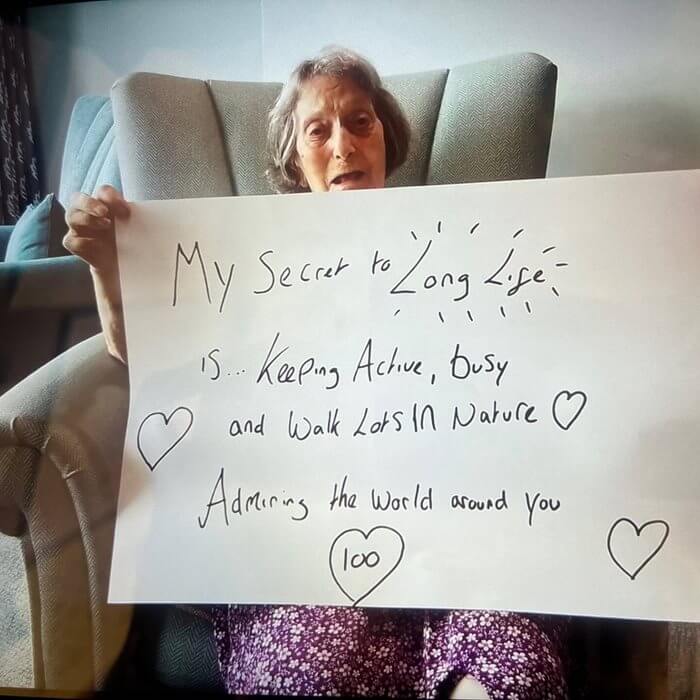 My Secret to Long Life
is... Keeping Active, busy
and Walk Lots In Nature
Admiring the World around you
100